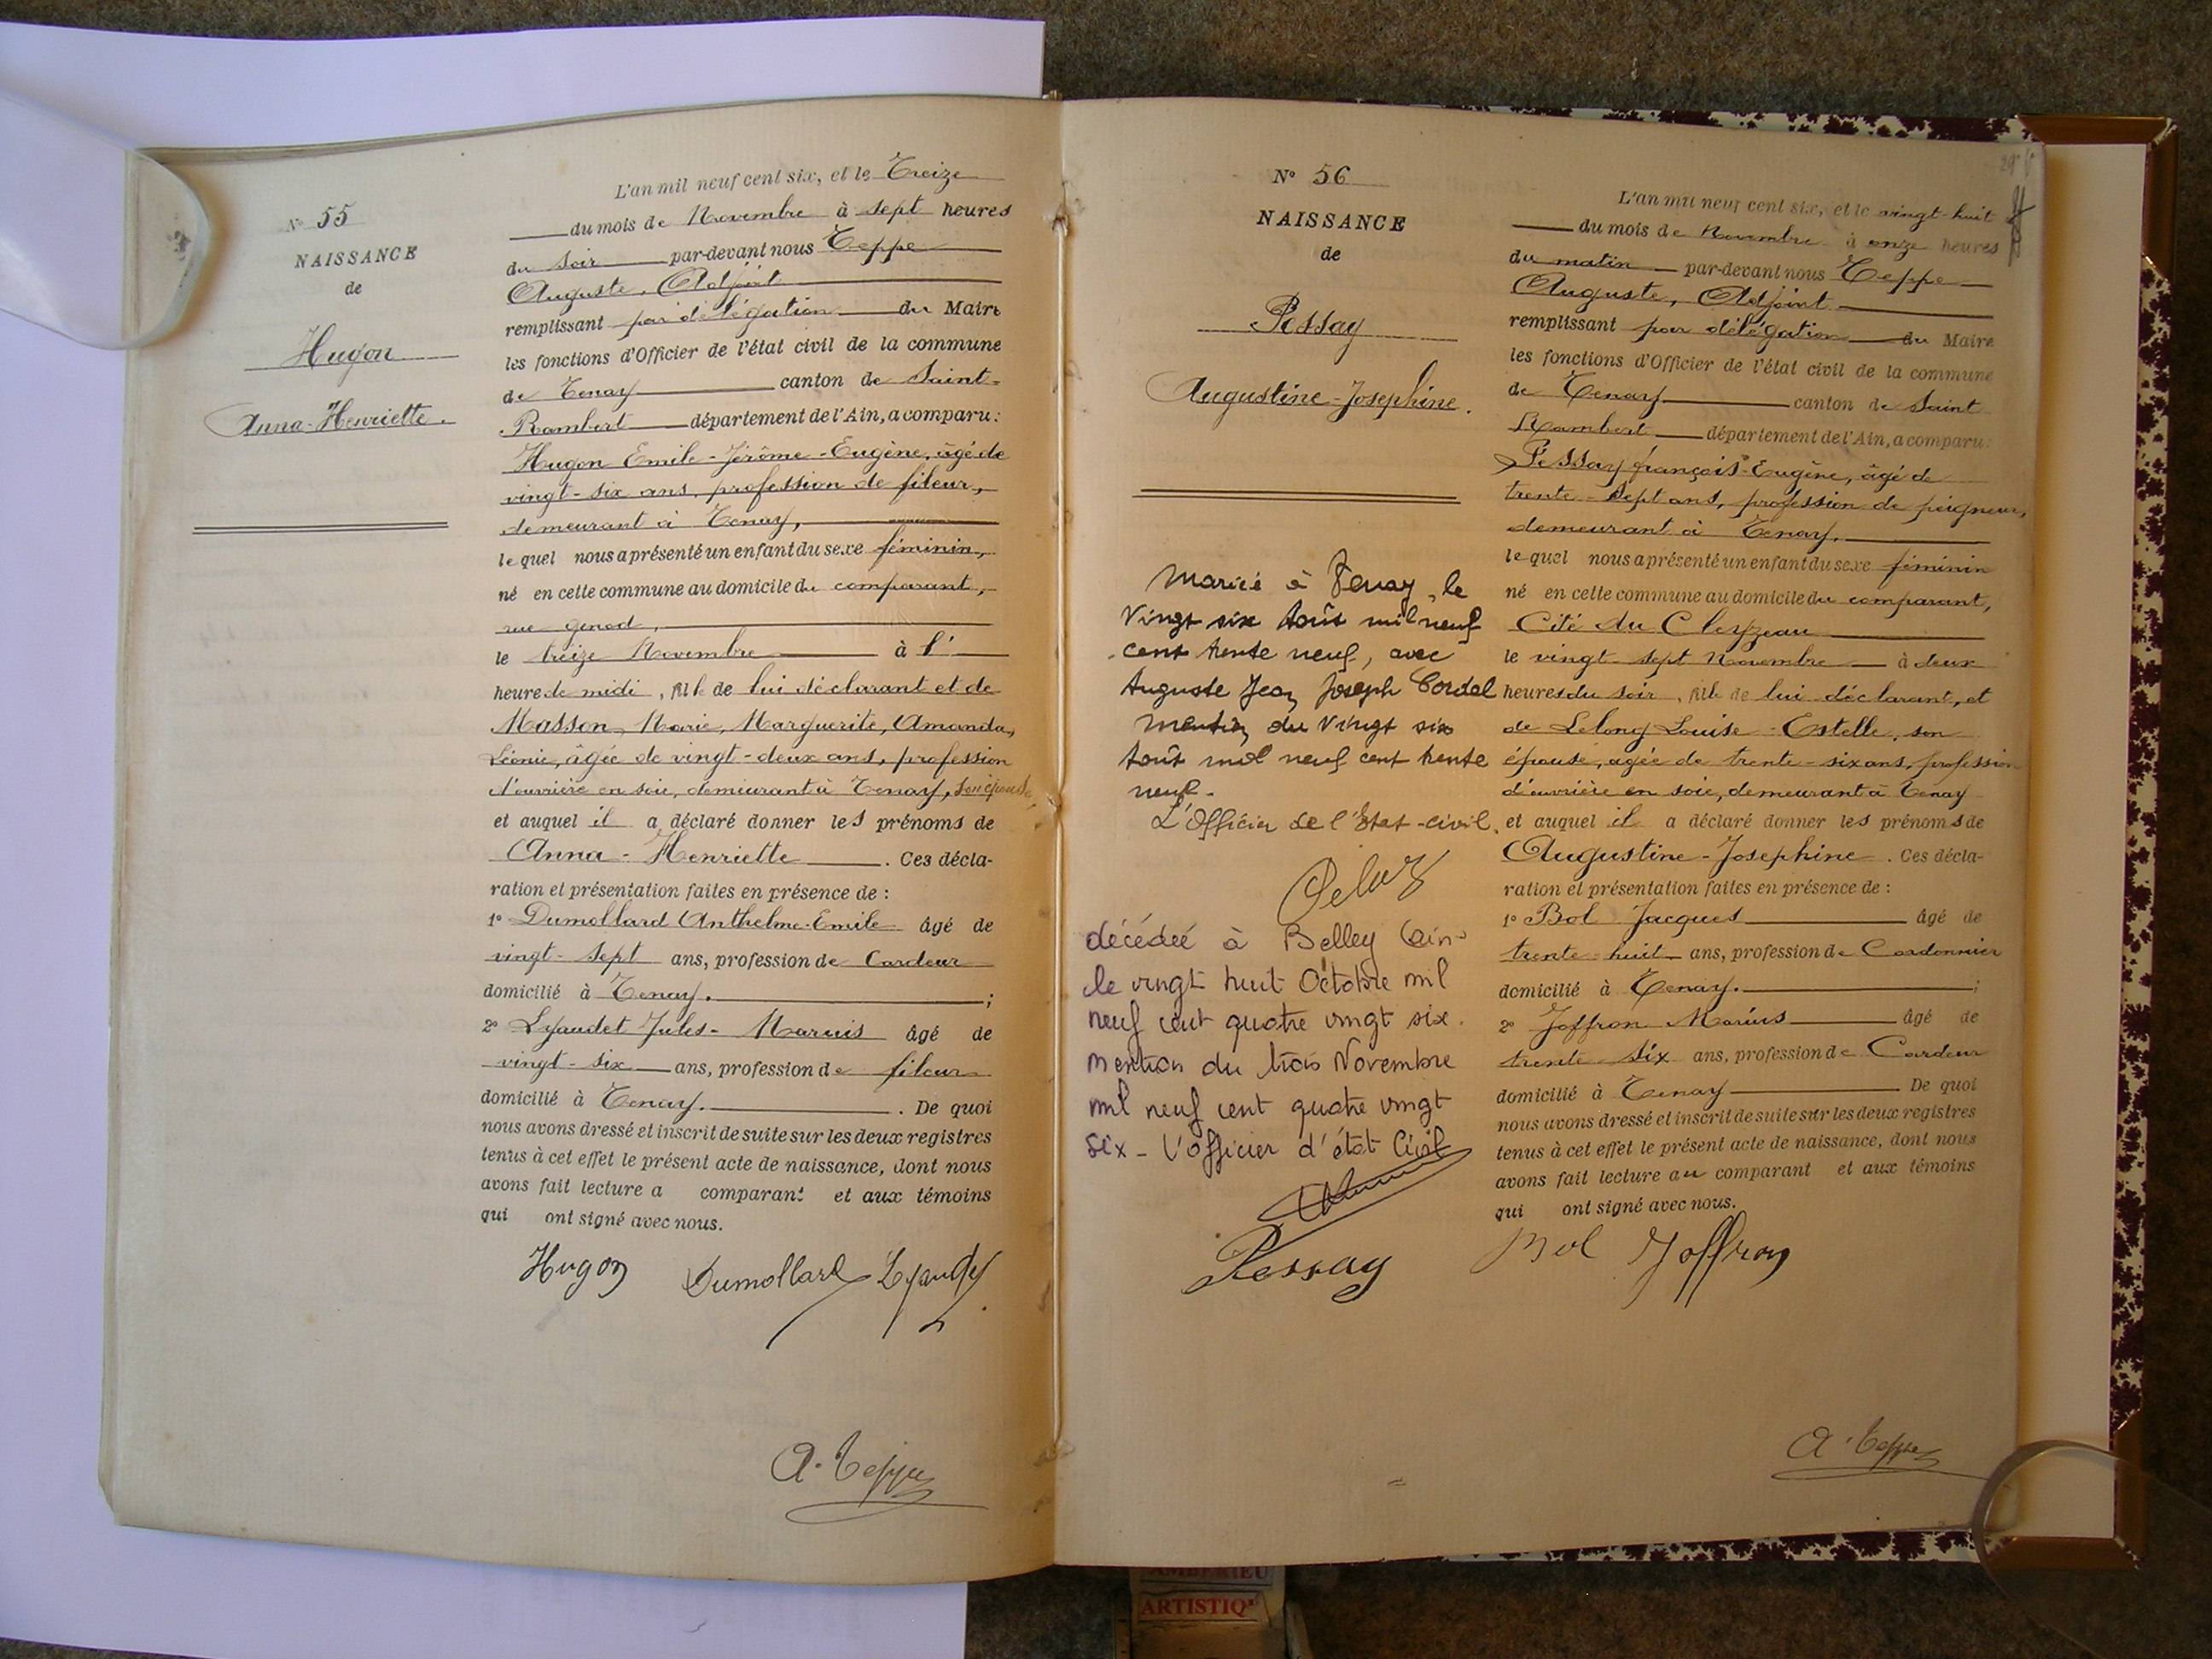 N° 55
NAISSANCE
de
Hugon
Anna-Henriette.
L'an mil neuf cent six, et le Treize
du mois de Novembre à sept heures
du soir par-devant nous Teppe
Auguste, Adjoint
remplissant par délégation du Maire
les fonctions d'Officier de l'état civil de la commune
de Tenay canton de Saint-
Rambert département de l'Ain, a comparu:
Hugon Emile-Jérôme-Eugène, âgé de
vingt-six ans, profession de fileur,
demeurant à Tenay,
lequel nous a présenté un enfant du sexe féminin,
né en cette commune au domicile du comparant,
rue Genod,
le treize Novembre à l'
heure de midi, fille de lui déclarant et de
Masson, Marie, Marguerite, Amanda,
Léonie, âgée de vingt-deux ans, profession
d'ouvrière en soie, demeurant à Tenay, son épouse,
et auquel il a déclaré donner les prénoms de
Anna-Henriette. Ces décla-
ration et présentation faites en présence de :
1° Dumollard Anthelme-Emile âgé de
vingt-sept ans, profession de Cardeur
domicilié à Tenay. ;
2° Lyaudet Jules-Marius âgé de
vingt-six ans, profession de fileur
domicilié à Tenay. . De quoi
nous avons dressé et inscrit de suite sur les deux registres
tenus à cet effet le présent acte de naissance, dont nous
avons fait lecture a comparant et aux témoins
qui ont signé avec nous.
Hugon Dumollard Lyaudet
A. Teppe
N° 56
NAISSANCE
de
Pessay
Augustine-Josephine.
Mariée à Tenay, le
Vingt six Août mil neuf
cent trente neuf, avec
Auguste Jean Joseph Cordel
Mention du Vingt six
Août mil neuf cent trente
neuf.
L'Officier de l'Etat-civil.
décédée à Belley (Ain)
le vingt huit Octobre mil
neuf cent quatre vingt six.
mention du trois Novembre
mil neuf cent quatre vingt
six - l'officier d'état Civil
Pessay
L'an mil neuf cent six, et le vingt-huit
du mois de Novembre à onze heures
du matin par-devant nous Teppe
Auguste, Adjoint
remplissant par délégation du Maire
les fonctions d'Officier de l'état civil de la commune
de Tenay canton de Saint
Rambert département de l'Ain, a comparu:
Pessay françois-Eugène, âgé de
trente-sept ans, profession de peigneur,
demeurant à Tenay,
lequel nous a présenté un enfant du sexe féminin
né en cette commune au domicile du comparant,
Cité du Cleyzeau
le vingt-sept Novembre à deux
heures du soir, fille de lui déclarant, et
de Lelong Louise-Estelle, son
épouse, agée de trente-six ans, profession
d'ouvrière en soie, demeurant à Tenay
et auquel il a déclaré donner les prénoms de
Augustine-Josephine. Ces décla-
ration et présentation faites en présence de :
1° Bol Jacques âgé de
trente-huit ans, profession de Cordonnier
domicilié à Tenay. ;
2° Joffron Marius âgé de
trente-six ans, profession de Cardeur
domicilié à Tenay De quoi
nous avons dressé et inscrit de suite sur les deux registres
tenus à cet effet le présent acte de naissance, dont nous
avons fait lecture au comparant et aux témoins
qui ont signé avec nous.
Bol Joffron
A. Teppe
AMBERIEU
ARTISTIQ